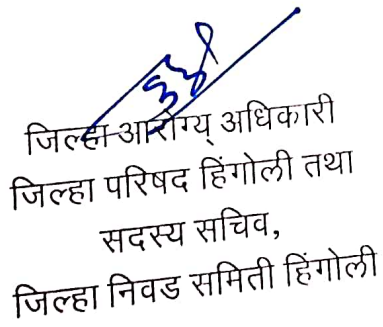 जिल्हा आरोग्य् अधिकारी
जिल्हा परिषद हिंगोली तथा
सदस्य सचिव,
जिल्हा निवड समिती हिंगोली